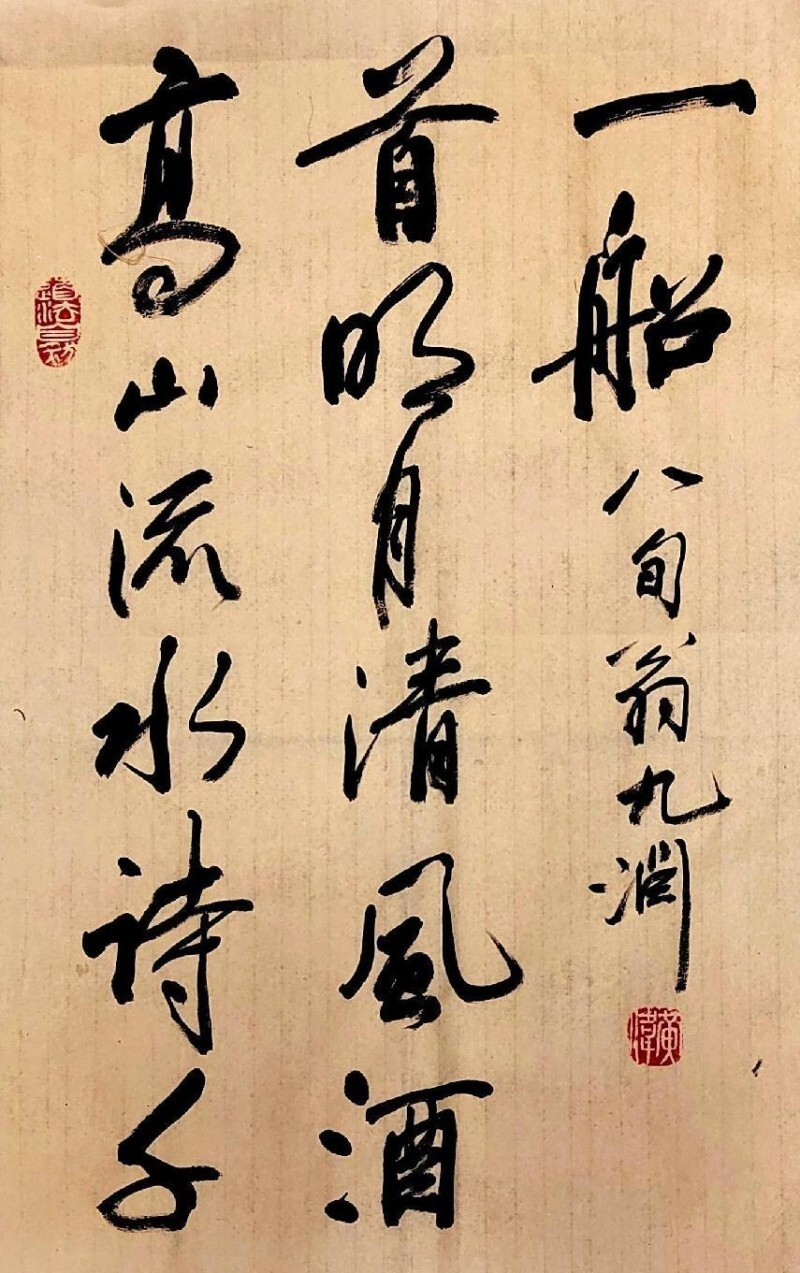 高山流水詩千
首明月清風酒
一船
八旬翁九渊